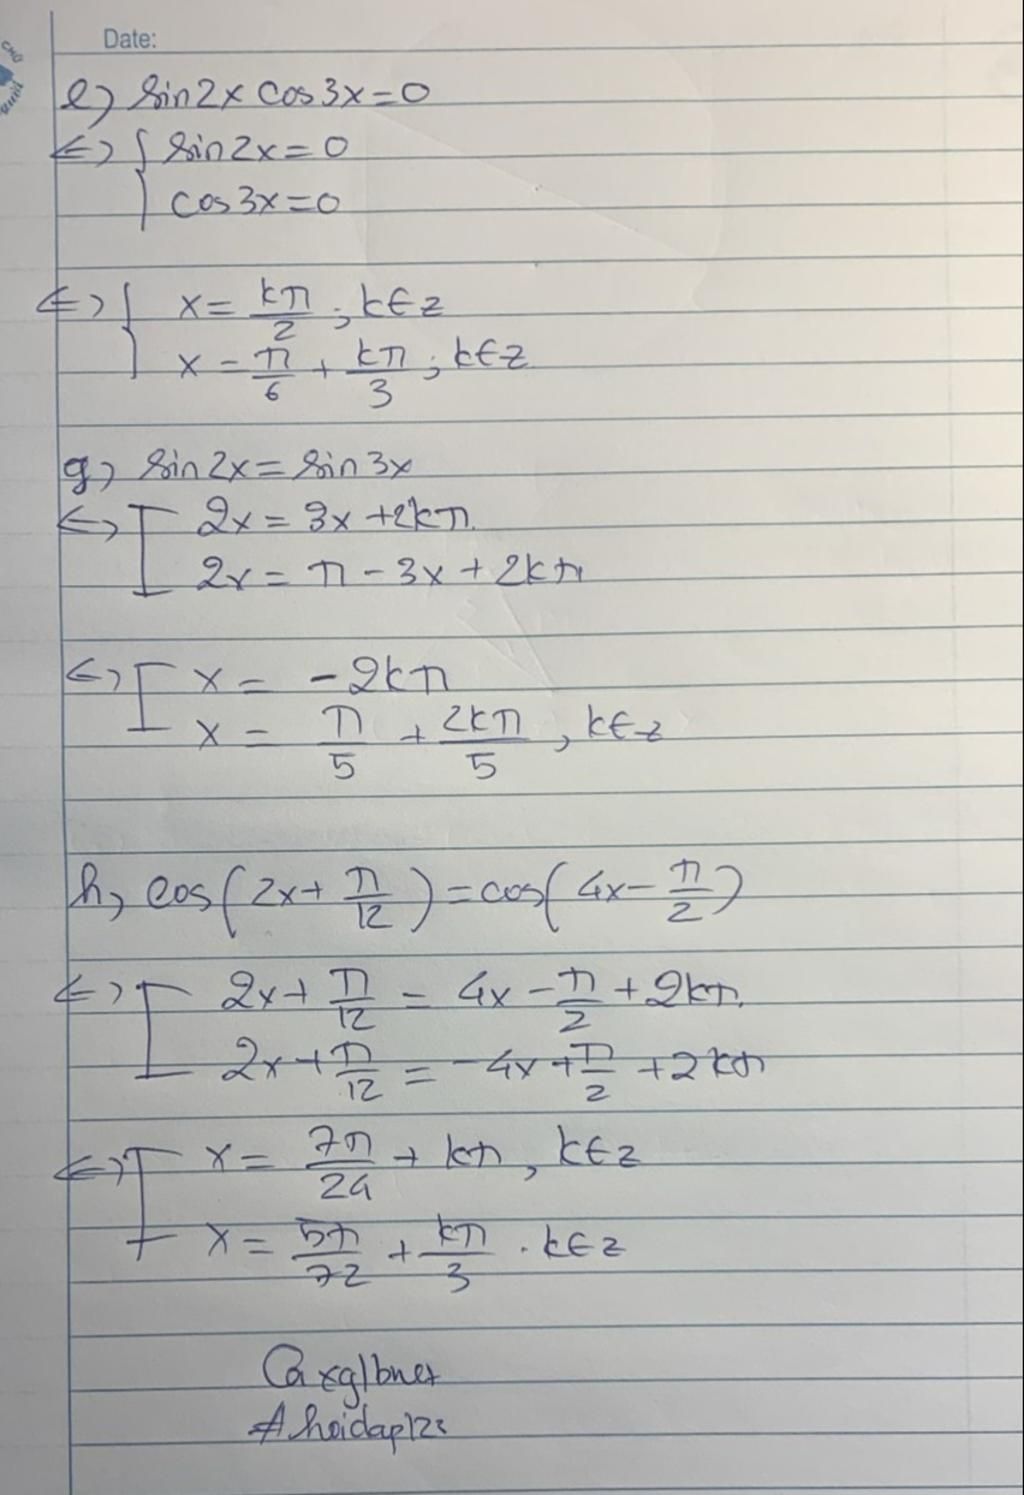 Date:
e) sin2x cos3x=0
<=> { sin2x=0
cos3x=0
<=> { x = kπ/2 ; k∈z
x = π/6 + kπ/3 ; k∈z
g) sin2x = sin3x
<=> [ 2x = 3x + 2kπ.
2x = π - 3x + 2kπ
<=> [ x = -2kπ
x = π/5 + 2kπ/5 , k∈z
h, cos(2x + π/12) = cos(4x - π/2)
<=> [ 2x + π/12 = 4x - π/2 + 2kπ.
2x + π/12 = -4x + π/2 + 2kπ
<=> [ x = 7π/24 + kπ , k∈z
x = 5π/72 + kπ/3 . k∈z
#hoidap123